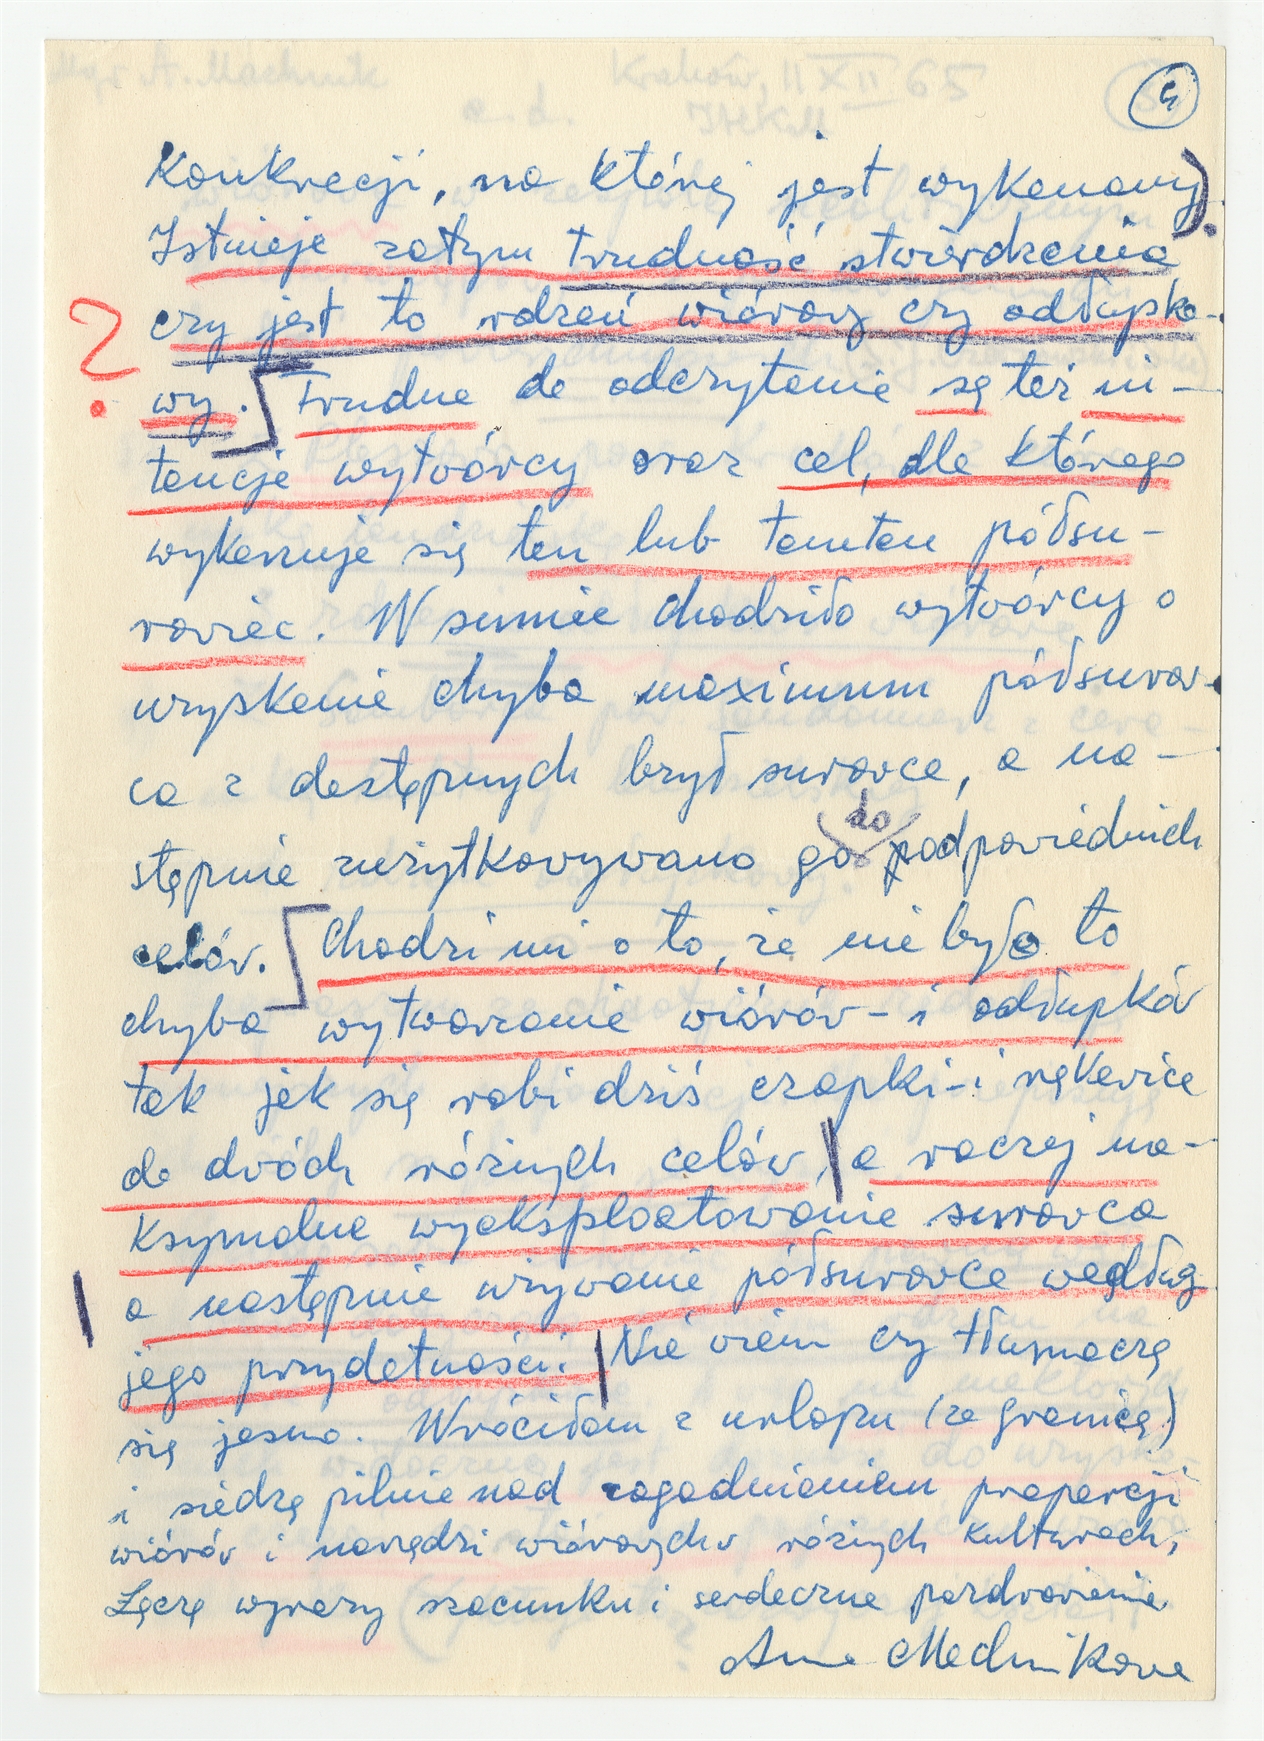 4
Konkrecji, na której jest wykonany).
Istnieje zatym trudność stwierdzenia
czy jest to rdzeń wiórowy czy odłupko-
?
wy. Trudne do odczytania są też in-
tencje wytwórcy oraz cel, dla którego
wykonuje się ten lub tamten półsu-
rowiec. W sumie chodziło wytwórcy o
uzyskanie chyba maximum półsurow-
ca z dostępnych brył surowca, a na-
do
stępnie zużytkowywano go podpowiednich
celów. Chodzi mi o to, że nie było to
chyba wytwarzanie wiórów - i odłupków
tak jak się robi dziś czapki - i rękawice
do dwóch różnych celów, a raczej ma-
ksymalne wyeksploatowanie surowca
a następnie używanie półsurowca według
jego przydatności. Nie wiem czy tłumaczę
się jasno. Wróciłam z urlopu (za granicą)
i siedzę pilnie nad zagadnieniem proporcji
wiórów i narzędzi wiórowych w różnych kulturach,
Łączę wyrazy szacunku i serdeczne pozdrowienia
Anna Machnikowa
Mgr A. Machnik
Kraków, 11 XII 65
c. d.
IHKM